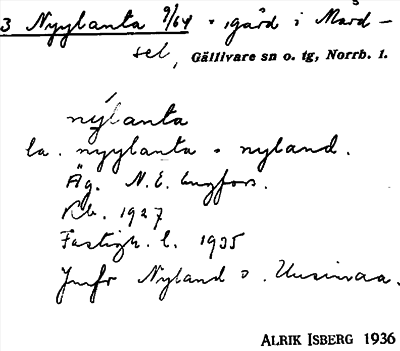 3 Nyylanta 9/64 • gård i Mård-
sel, Gällivare sn o. tg, Norrb. l.
nýlanta
la. nyylanta • nyland.
Äg. N. E. Engfors.
Kb. 1927
Fastigh. l. 1935
Jmfr Nyland o. Uusimaa.
ALRIK ISBERG 1936